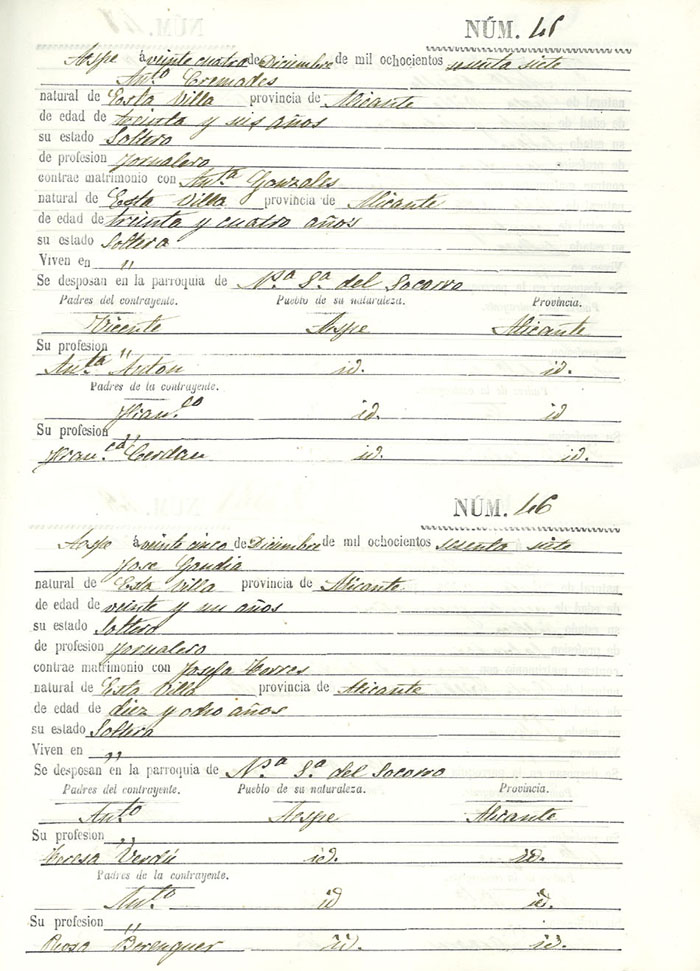 NÚM. 45
Aspe á veinte cuatro de Diciembre de mil ochocientos sesenta siete
Ant.º Cremades
natural de Esta Villa provincia de Alicante
de edad de treinta y seis años
su estado Soltero
de profesion jornalero
contrae matrimonio con Ant.ª Gonzales
natural de Esta Villa provincia de Alicante
de edad de treinta y cuatro años
su estado Soltera
Viven en "
Se desposan en la parroquia de N.ª S.ª del Socorro
Padres del contrayente. Pueblo de su naturaleza. Provincia.
Vicente Aspe Alicante
Su profesion "
Ant.ª Anton id. id.
Padres de la contrayente.
Fran.co id. id
Su profesion "
Fran.ca Cerdan id. id.
NÚM. 46
Aspe á veinte cinco de Diciembre de mil ochocientos sesenta siete
Jose Gandia
natural de Esta Villa provincia de Alicante
de edad de veinte y un años
su estado Soltero
de profesion jornalero
contrae matrimonio con Josefa Torres
natural de Esta Villa provincia de Alicante
de edad de diez y ocho años
su estado Soltera
Viven en "
Se desposan en la parroquia de N.ª S.ª del Socorro
Padres del contrayente. Pueblo de su naturaleza. Provincia.
Ant.º Aspe Alicante
Su profesion "
Teresa Verdú id. id.
Padres de la contrayente.
Ant.º id id.
Su profesion "
Rosa Berenguer id. id.